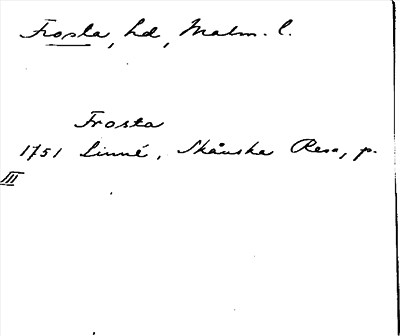 Frosta, hd, Malm. l.
Frosta
1751 Linné, Skånska Resa, p.
III